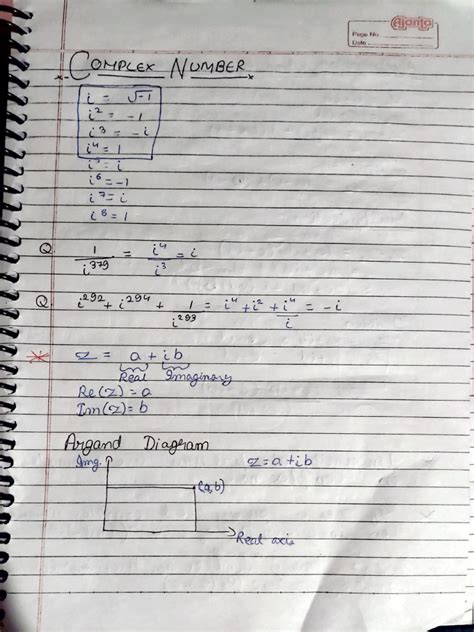 Ajanta
Page No.
Date
COMPLEX NUMBER
i = √-1
i² = -1
i³ = -i
i⁴ = 1
i⁵ = i
i⁶ = -1
i⁷ = i
i⁸ = 1
Q. 1/i³⁷⁹ = i⁴/i³ = i
Q. i²⁹² + i²⁹⁴ + 1/i²⁹³ = i⁴ + i² + i⁴/i = -i
z = a + ib
Real Imaginary
Re(z) = a
Im(z) = b
Argand Diagram
Img.
z = a + ib
(a,b)
Real axis